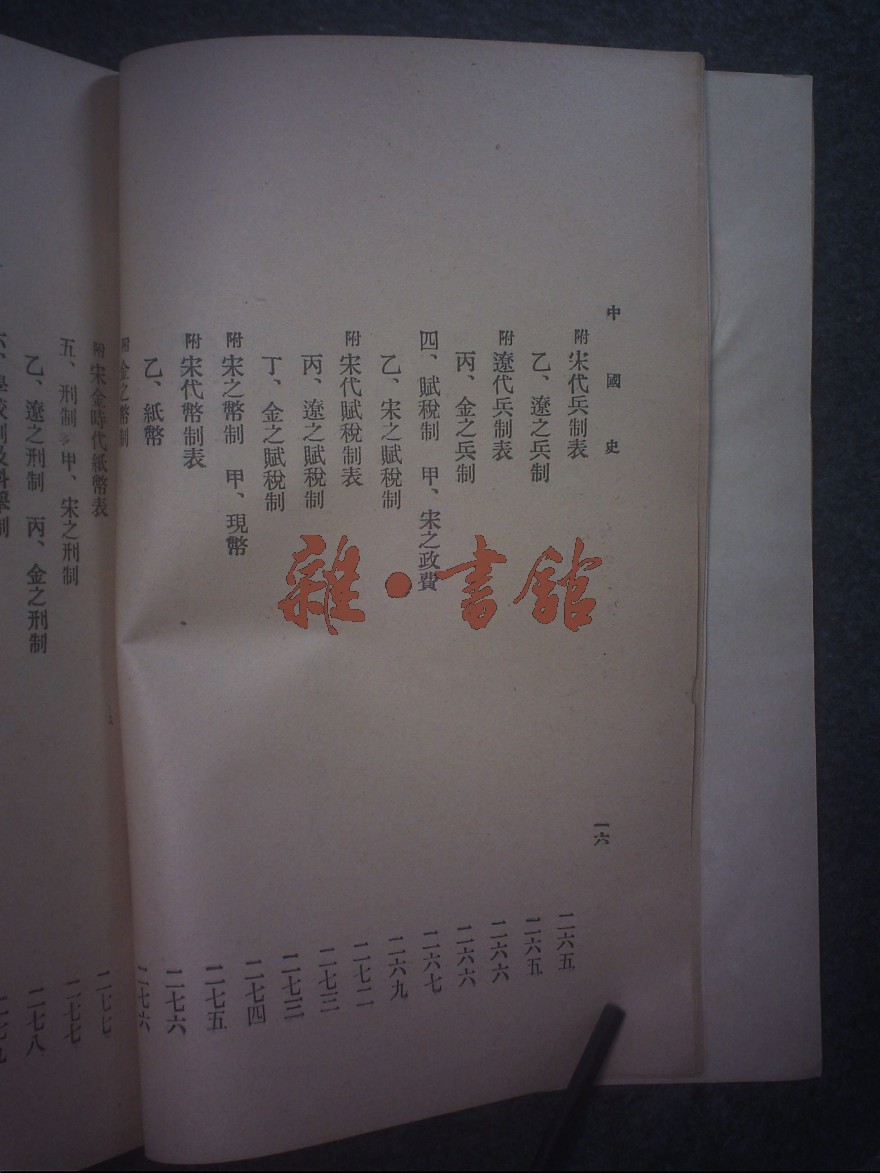 中國史
一六
附 宋代兵制表 二六五
乙、遼之兵制 二六五
附 遼代兵制表 二六六
丙、金之兵制 二六六
四、賦稅制 甲、宋之政費 二六七
乙、宋之賦稅制 二六九
附 宋代賦稅制表 二七二
丙、遼之賦稅制 二七三
丁、金之賦稅制 二七三
附 宋之幣制 甲、現幣 二七四
附 宋代幣制表 二七五
乙、紙幣 二七六
附 金之幣制 二七六
附 宋金時代紙幣表 二七七
五、刑制 甲、宋之刑制 二七七
乙、遼之刑制 丙、金之刑制 二七八
六、學校制及科舉制 二七九
雜·書館